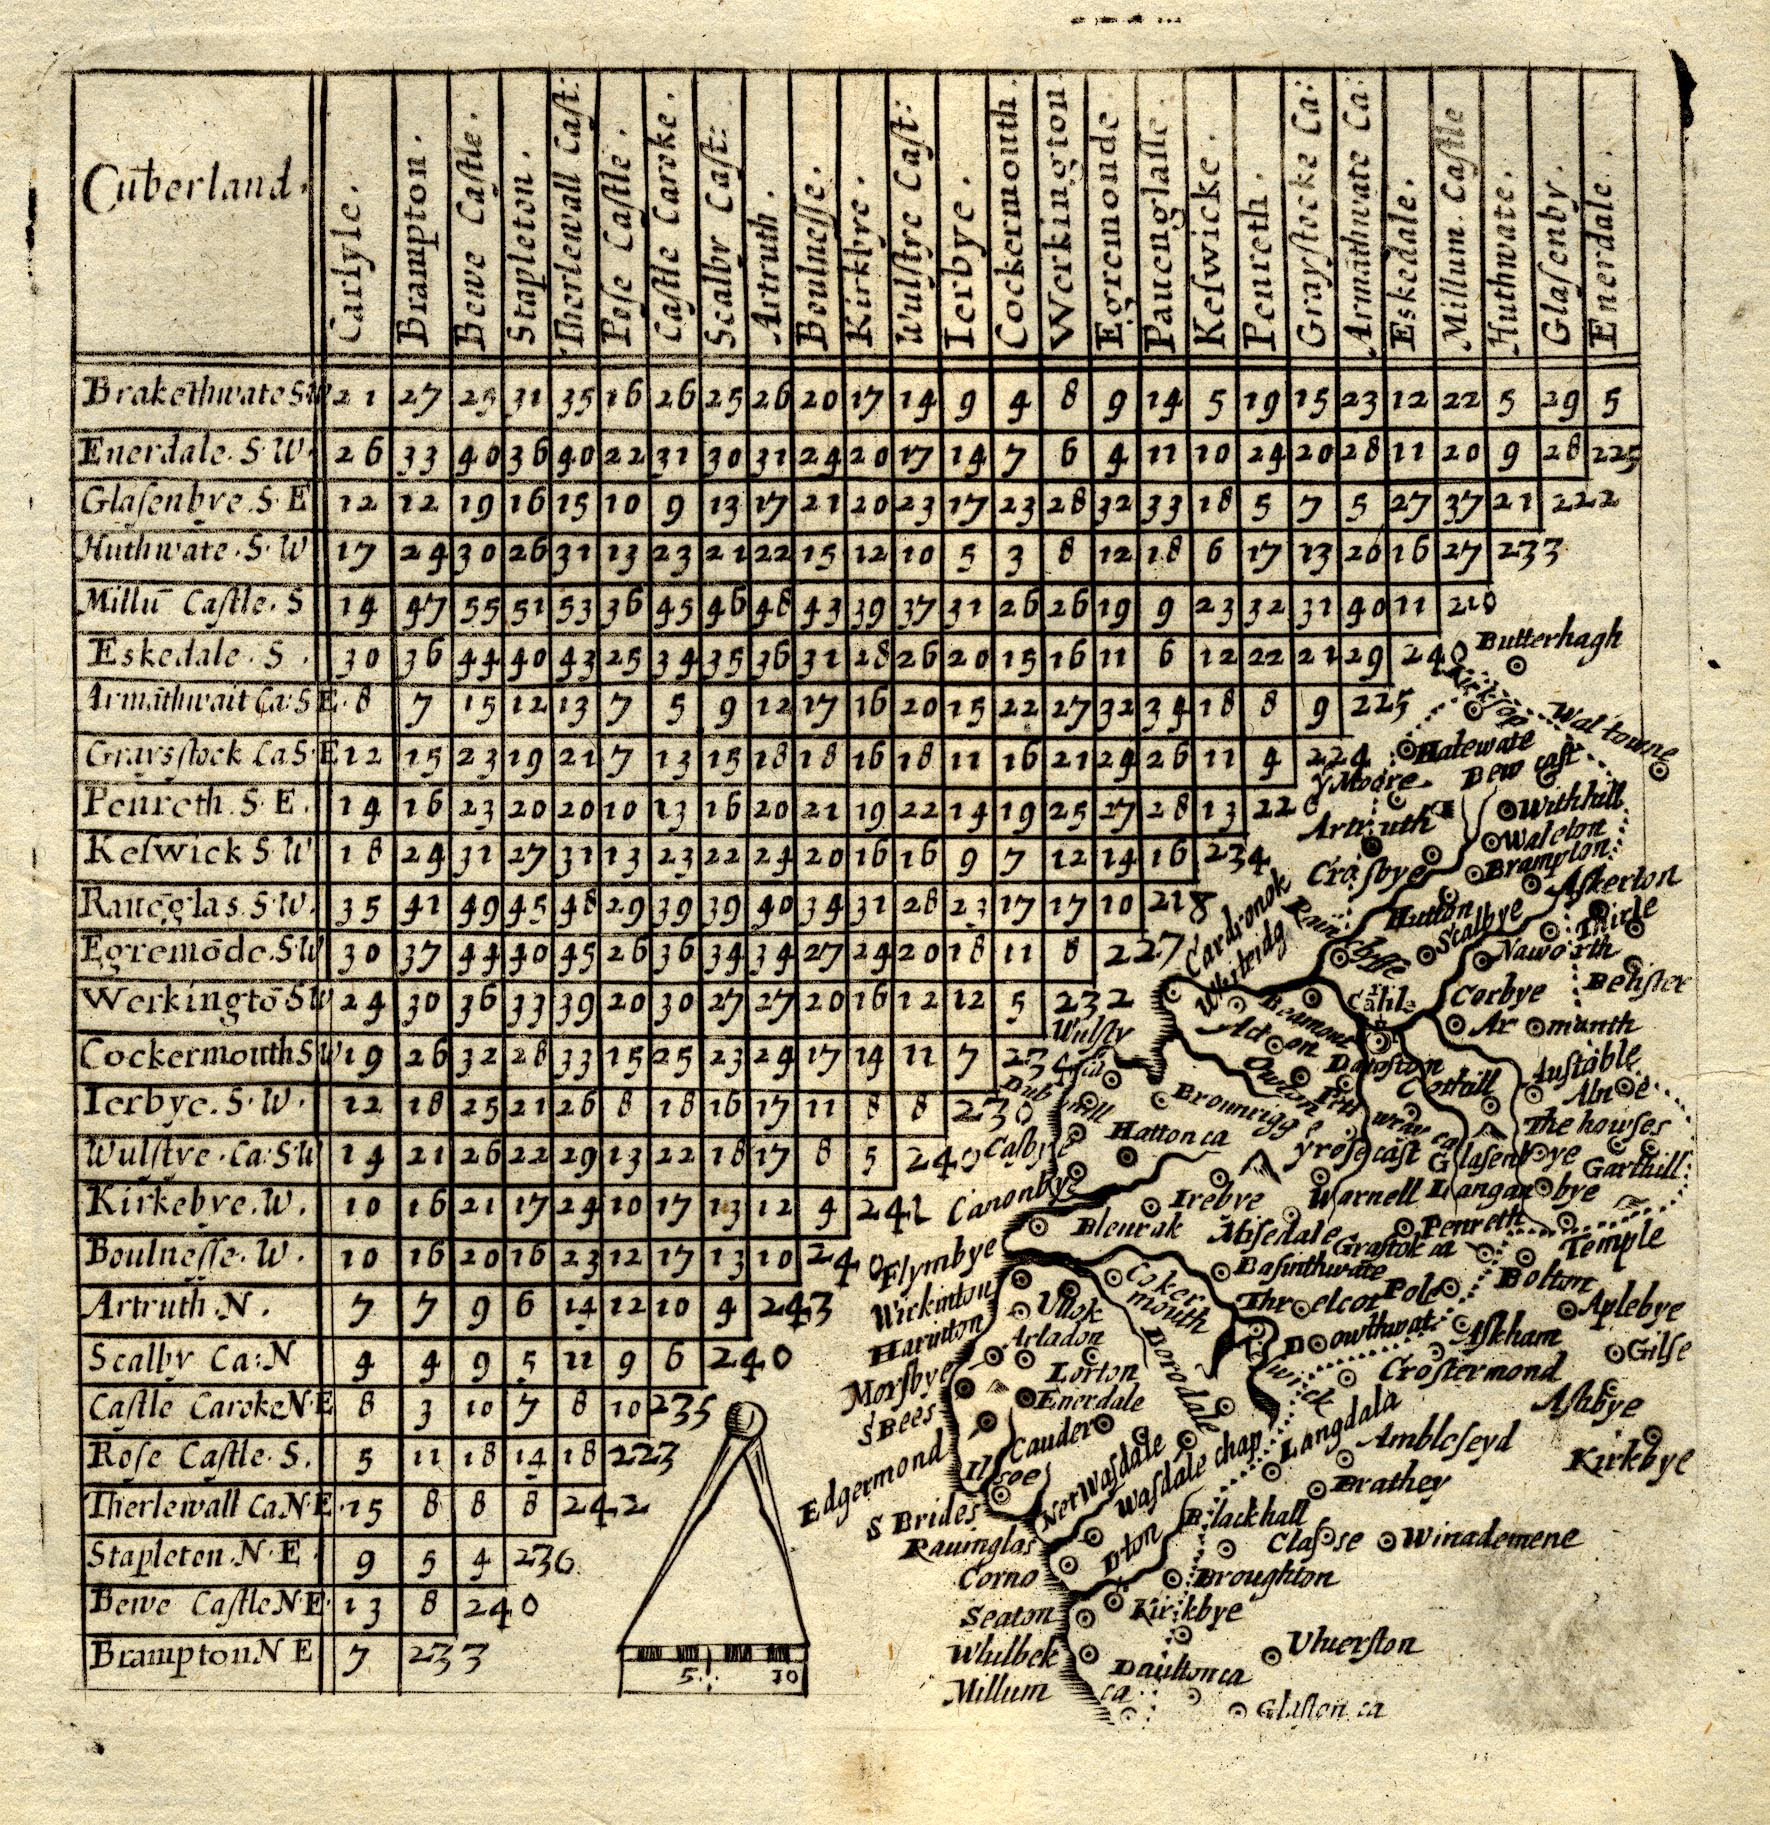 Cūberland.
Carlyle.
Brampton.
Bewe Caſtle.
Stapleton.
Therlewall Caſt:
Poſe Caſtle.
Caſtle Caroke.
Scalby Caſt:
Artruth.
Boulneſſe.
Kirkbye.
Wulſtye Caſt:
Ierbye.
Cockermouth.
Werkington
Egremonde.
Rauenglaſſe.
Keſwicke.
Penreth.
Grayſtocke Ca:
Armāthwate Ca:
Eskedale.
Millum. Caſtle
Huthwate.
Glaſenby.
Enerdale.
Brakethwate SW 21 27 25 31 35 16 26 25 26 20 17 14 9 4 8 9 14 5 19 15 23 12 22 5 29 5
Enerdale. S. W. 26 33 40 36 40 22 31 30 31 24 20 17 14 7 6 4 11 10 24 20 28 11 20 9 28 225
Glaſenbye. S. E 12 12 19 16 15 10 9 13 17 21 20 23 17 23 28 32 33 18 5 7 5 27 37 21 222
Huthwate. S. W 17 24 30 26 31 13 23 21 22 15 12 10 5 3 8 12 18 6 17 13 20 16 27 233
Millū Caſtle. S 14 47 55 51 53 36 45 46 48 43 39 37 31 26 26 19 9 23 32 31 40 11 210
Eskedale. S. 30 36 44 40 43 25 34 35 36 31 28 26 20 15 16 11 6 12 22 21 29 240
Armāthwait Ca: S E. 8 7 15 12 13 7 5 9 12 17 16 20 15 22 27 32 34 18 8 9 225
Graysſtock Ca S. E 12 15 23 19 21 7 13 15 18 18 16 18 11 16 21 24 26 11 4 224
Penreth. S. E. 14 16 23 20 20 10 13 16 20 21 19 22 14 19 25 27 28 13 220
Keſwick S W 18 24 31 27 31 13 23 22 24 20 16 16 9 7 12 14 16 234
Rauēglas. S. W. 35 41 49 45 48 29 39 39 40 34 31 28 23 17 17 10 218
Egremōde. S W 30 37 44 40 45 26 36 34 34 27 24 20 18 11 8 227
Werkingtō S W 24 30 36 33 39 20 30 27 27 20 16 12 12 5 232
Cockermouth S W 19 26 32 28 33 15 25 23 24 17 14 11 7
Ierbye. S. W. 12 18 25 21 26 8 18 16 17 11 8 8 230
Wulſtye. Ca: S W 14 21 26 22 29 13 22 18 17 8 5 240
Kirkebye. W. 10 16 21 17 24 10 17 13 12 4 241
Boulneſſe. W. 10 16 20 16 23 12 17 13 10 240
Artruth. N. 7 7 9 6 14 12 10 4 243
Scalby Ca: N 4 4 9 5 11 9 6 240
Caſtle Caroke N. E 8 3 10 7 8 10 235
Roſe Caſtle. S. 5 11 18 14 18 223
Therlewall Ca. N. E. 15 8 8 8 242
Stapleton. N. E. 9 5 4 236
Bewe Caſtle N. E. 13 8 240
Brampton N E 7 233
5 10
Butterhagh
Kirksop
Wal towne
Hatewate
Bew caſt
y Moore
Withhill
Artruth
Walelon
Brampton
Croſbye
Aſkerton
Cardronok
Hutton
Scalbye
Thirle
Whitridg
Naworth
Rawcliffe
Beliſter
Carlile
Corbye
Beamont
Wulſty
Acton
Ar manth
Dalſton
Cothill
Auſtable
Dubmill
Owton
Brounrigge
The howſes
Hatton ca
yroſe caſt
Glaſenbye
Garthill
Canonbye
Irebye
Warnell
Langan bye
Blenrak
Miſedale
Penreth
Graſtok ca
Temple
Flymbye
Baſinthwāte
Bolton
Wirkinton
Cokermouth
Threlcot
Pole
Aplebye
Harinton
Ullok
Arladon
Doowthwat
Aſkham
Gilſe
Morſbye
Lorton
Borodale
Croſtermond
S Bees
Enerdale
Aſhbye
Edgermond
Cauder
Langdala
Ambleſeyd
Kirkbye
Net Waſdale
Waſdale chap
Brathey
S Brides
Blackhall
Rauinglas
Clafſe
Winademene
Corno
Broughton
Seaton
Kirkbye
Whilbek
Uluerſton
Millum ca
Daulton ca
Glaſton ca